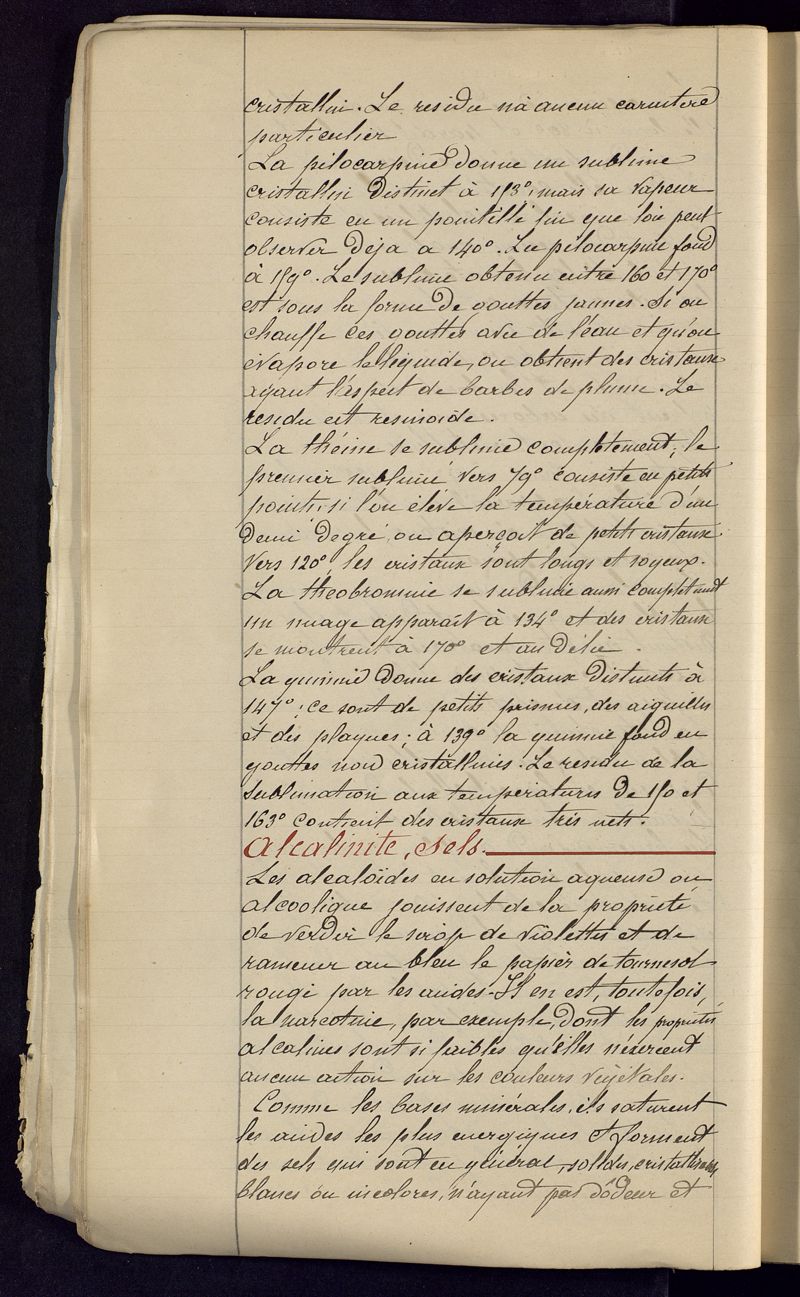 cristallin. Le residu n'a aucun caractere
particulier
La pilocarpine donne un sublime
cristallin distinct à 153°, mais sa vapeur
consiste en un pointillé fin que l'on peut
observer déja a 140°. La pilocarpine fond
à 159°. Le sublime obtenu entre 160 et 170°
est sous la forme de gouttes jaunes. Si on
chauffe ces gouttes avec de l'eau et qu'on
évapore le liquide, on obtient des cristaux
ayant l'aspect de barbes de plume. Le
residu est resinoide.
La théine se sublime completement; le
premier sublimé vers 79° consiste en petits
points, si l'on élève la température d'un
demi degré, on aperçoit de petits cristaux
vers 120°, les cristaux sont longs et soyeux.
La theobromine se sublime aussi completement
un nuage apparaît à 134° et des cristaux
se montrent à 170° et au délà.
La quinine donne des cristaux distincts à
147°; ce sont de petits prismes, des aiguilles
et des plaques; à 139° la quinine fond en
gouttes non cristallines. Le residu de la
sublimation aux températures de 150 et
163° contient des cristaux très nets.
Alcalinite, Sels.
Les alcaloïdes en solution aqueuse ou
alcoolique jouissent de la propriété
de verdir le sirop de violettes et de
ramener au bleu le papier de tournesol
rougi par les acides. Il en est, toutefois,
la narcotine, par exemple, dont les propriétés
alcalines sont si faibles qu'elles n'éxercent
aucun action sur les couleurs végétales.
Comme les bases minérales, ils saturent
les acides les plus energiques et forment
des sels qui sont en général, solides, cristallisables,
blancs ou incolores, n'ayant pas d'odeur et